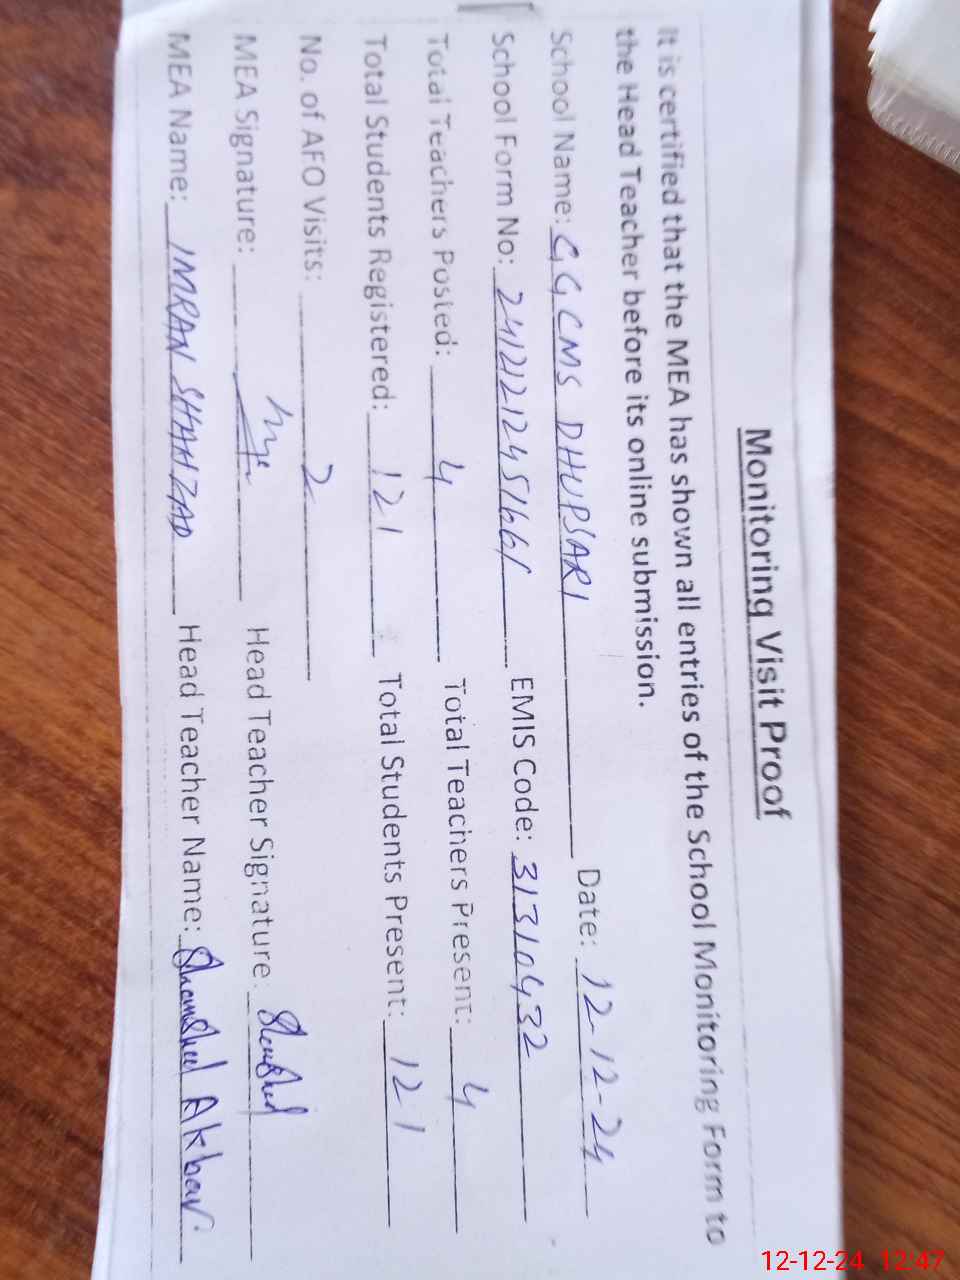 Monitoring Visit Proof
It is certified that the MEA has shown all entries of the School Monitoring Form to
the Head Teacher before its online submission.
School Name: GGCMS DHUPSARI Date: 12-12-24
School Form No: 24121212451661 EMIS Code: 31310432
Total Teachers Posted: 4 Total Teachers Present: 4
Total Students Registered: 121 Total Students Present: 121
No. of AFO Visits: 2
MEA Signature: Head Teacher Signature:
MEA Name: IMRAN SHAHZAD Head Teacher Name: Akbar
12-12-24 12:47